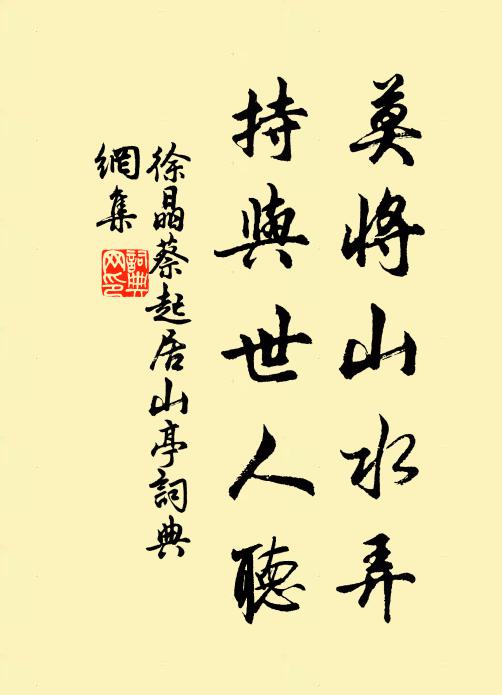 莫將山水弄
持與世人聽
徐晶蔡起居山亭詞典
網集
詞典
网印